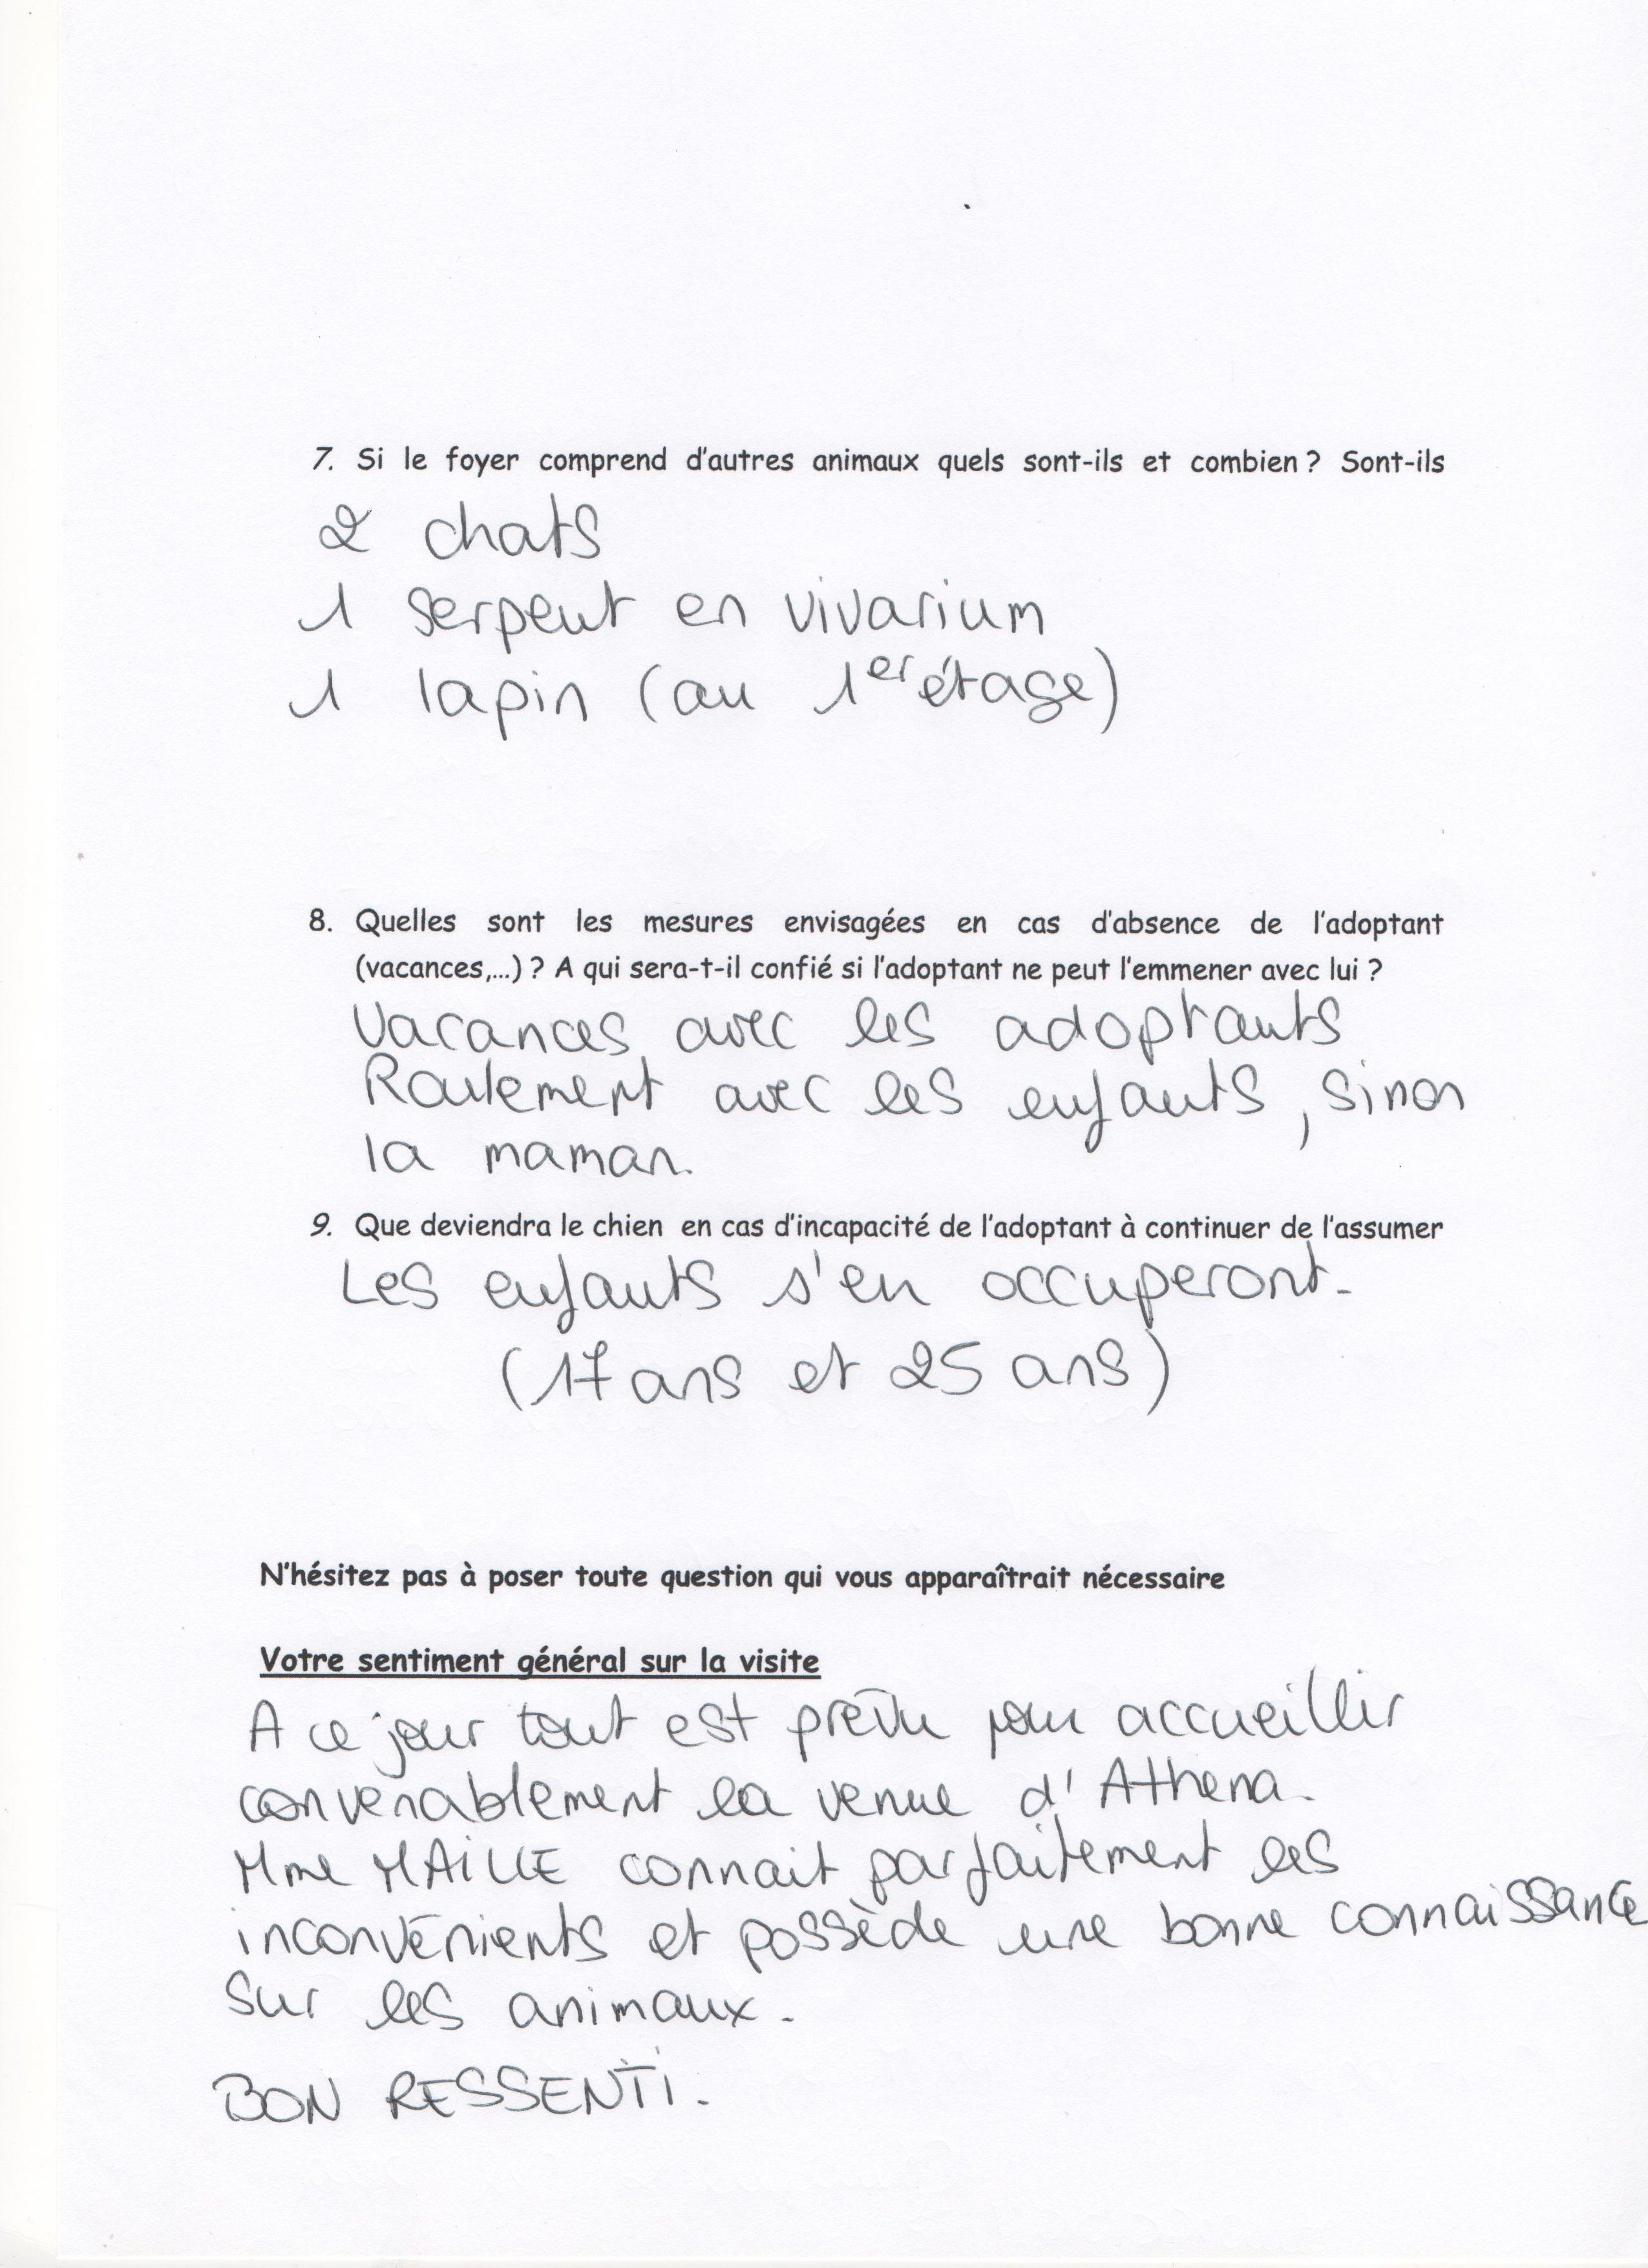 7. Si le foyer comprend d'autres animaux quels sont-ils et combien ? Sont-ils
2 chats
1 serpent en vivarium
1 lapin (au 1er étage)
8. Quelles sont les mesures envisagées en cas d'absence de l'adoptant
(vacances,…) ? A qui sera-t-il confié si l'adoptant ne peut l'emmener avec lui ?
Vacances avec les adoptants
Roulement avec les enfants, sinon
la maman.
9. Que deviendra le chien en cas d'incapacité de l'adoptant à continuer de l'assumer
Les enfants s'en occuperont.
(17 ans et 25 ans)
N'hésitez pas à poser toute question qui vous apparaîtrait nécessaire
Votre sentiment général sur la visite
A ce jour tout est prévu pour accueillir
convenablement la venue d'Athena.
Mme MAILLE connait parfaitement les
inconvénients et possède une bonne connaissance
sur les animaux.
BON RESSENTI.